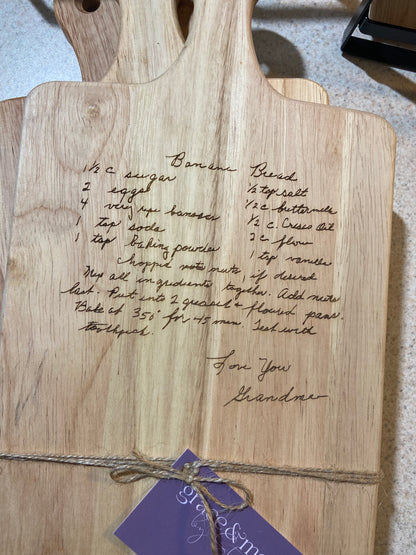 Banana Bread
1 1/2 c sugar
2 eggs
4 very ripe bananas
1 tsp soda
1 tsp baking powder
1/2 tsp salt
1/2 c buttermilk
1/2 c. Crisco Oil
2 c flour
1 tsp vanilla
chopped nuts, if desired
Mix all ingredients together. Add nuts
last. Put into 2 greased & floured pans.
Bake at 350° for 45 min. Test with
toothpick.
Love You
Grandma
grace & m